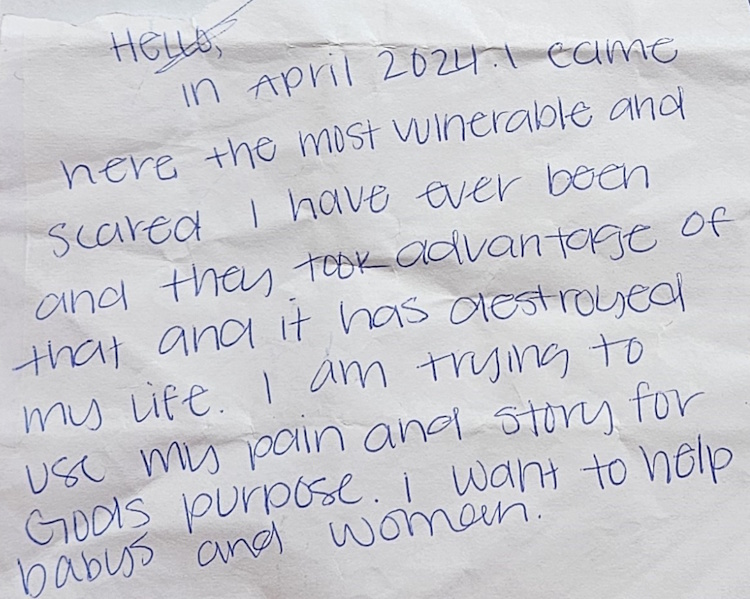 HELLO,
in April 2024. I came
here the most vulnerable and
scared I have ever been
and they took advantage of
that and it has destroyed
my life. I am trying to
use my pain and story for
Gods purpose. i want to help
babys and women.